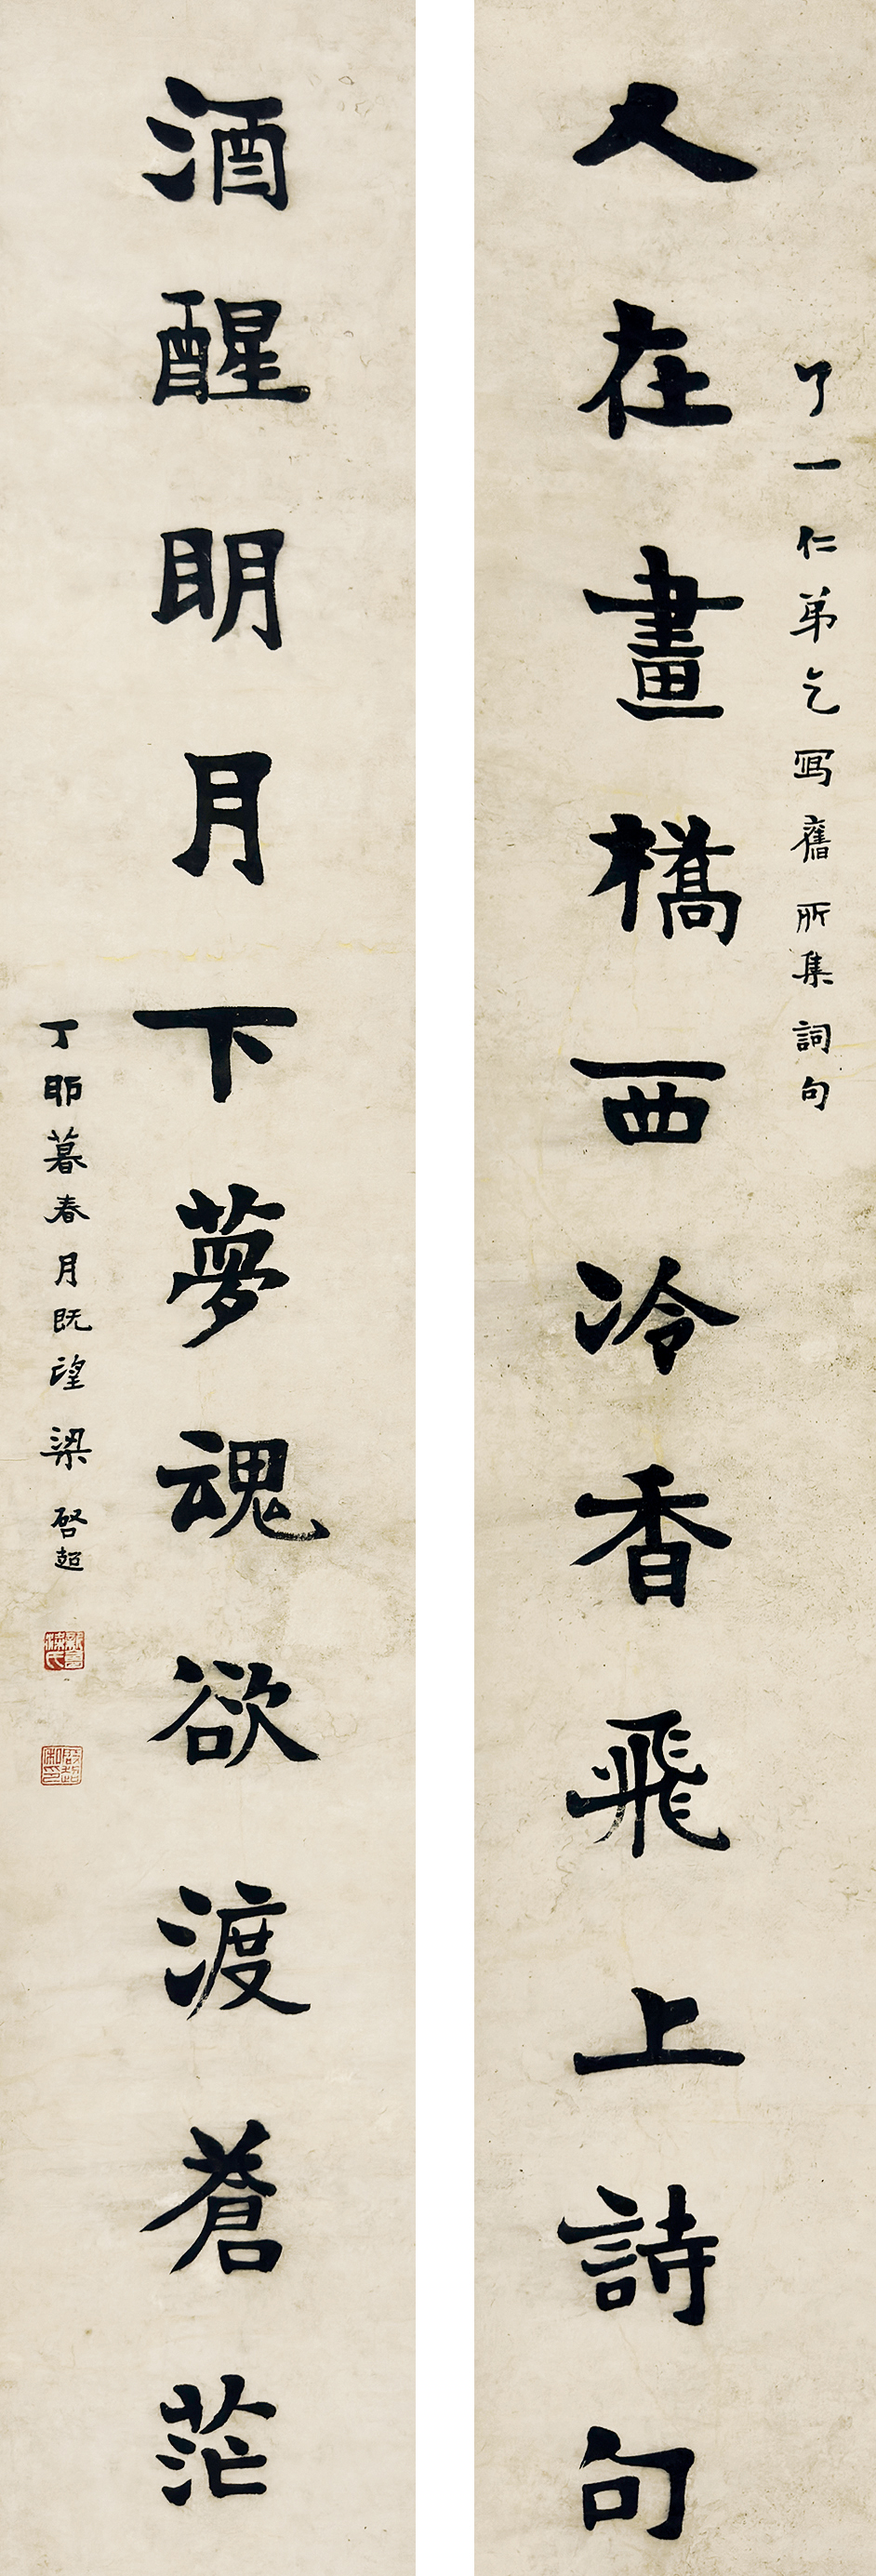 了一仁弟乞写舊所集詞句
人在畫橋西冷香飛上詩句
酒醒明月下夢魂欲渡蒼茫
丁卯暮春月既望梁啓超
新會梁氏
啟超私印